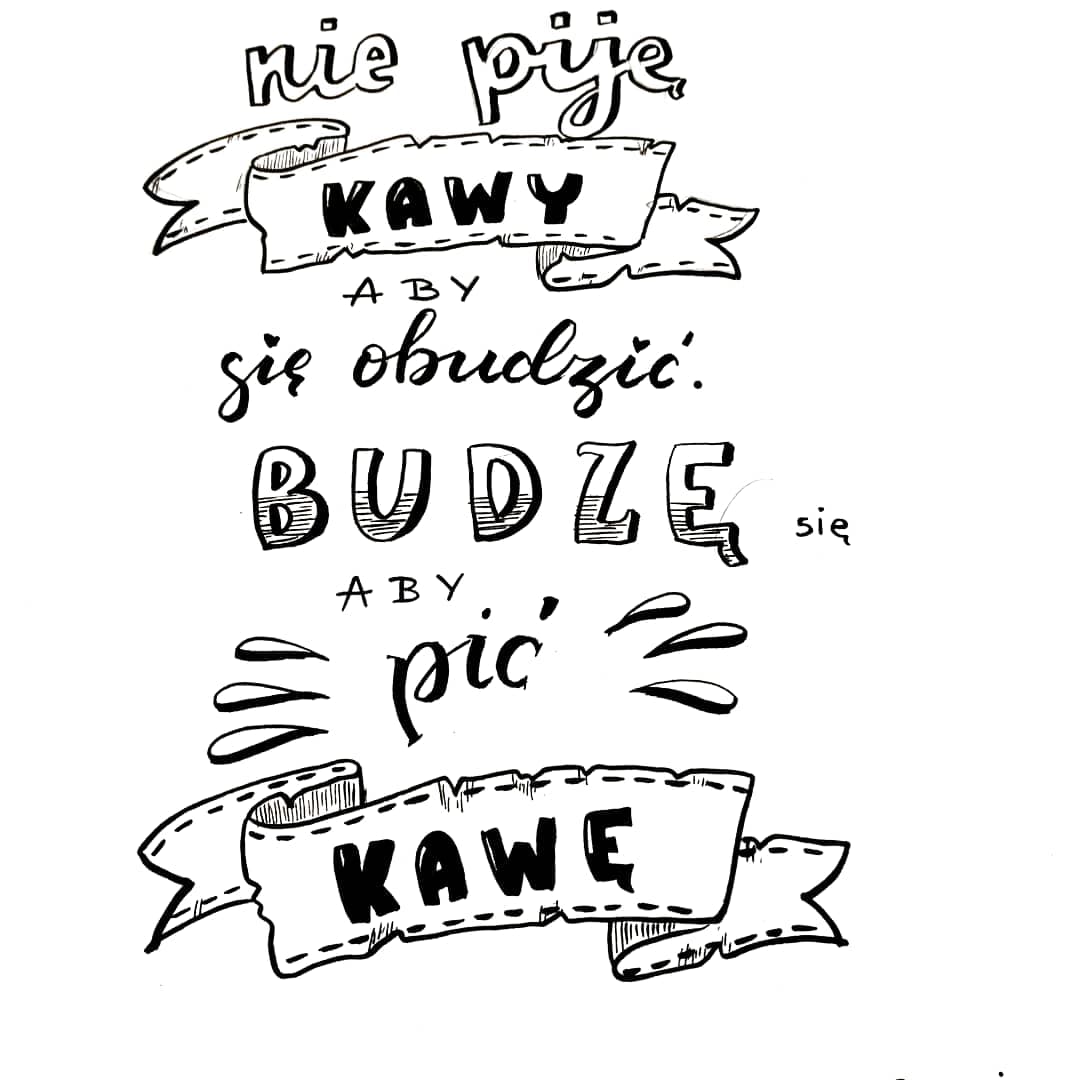 nie piję
KAWY
ABY
się obudzić.
BUDZĘ się
ABY
pić
KAWĘ